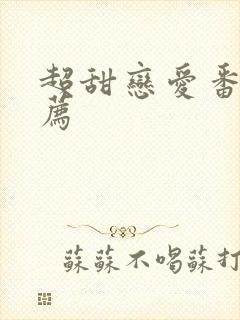 超甜戀愛番
薦
蘇蘇不喝蘇打